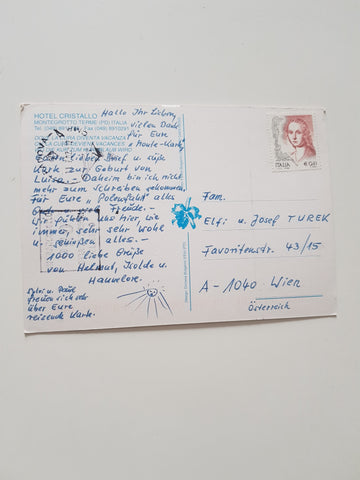 HOTEL CRISTALLO
MONTEGROTTO TERME (PD) ITALIA
Hallo Ihr Lieben,
vielen Dank
für Eure
"Monte-Karte",
lieben Brief u. süße
Karte zur Geburt von
Luisa.- Daheim bin ich nicht
mehr zum Schreiben gekommen.
Für Eure "Polenfahrt" alles
Gute u. viel Freude.-
Wir fühlen uns hier, wie
immer, sehr sehr wohl
u. genießen alles.-
1000 liebe Grüße
von Helmut, Isolde u.
Hannelore.
freuten sich sehr
über Eure
reizende Karte.
ITALIA
€ 0,41
Fam.
Elfi u. Josef TUREK
Favoritenstr. 43/15
A-1040 Wien
Österreich